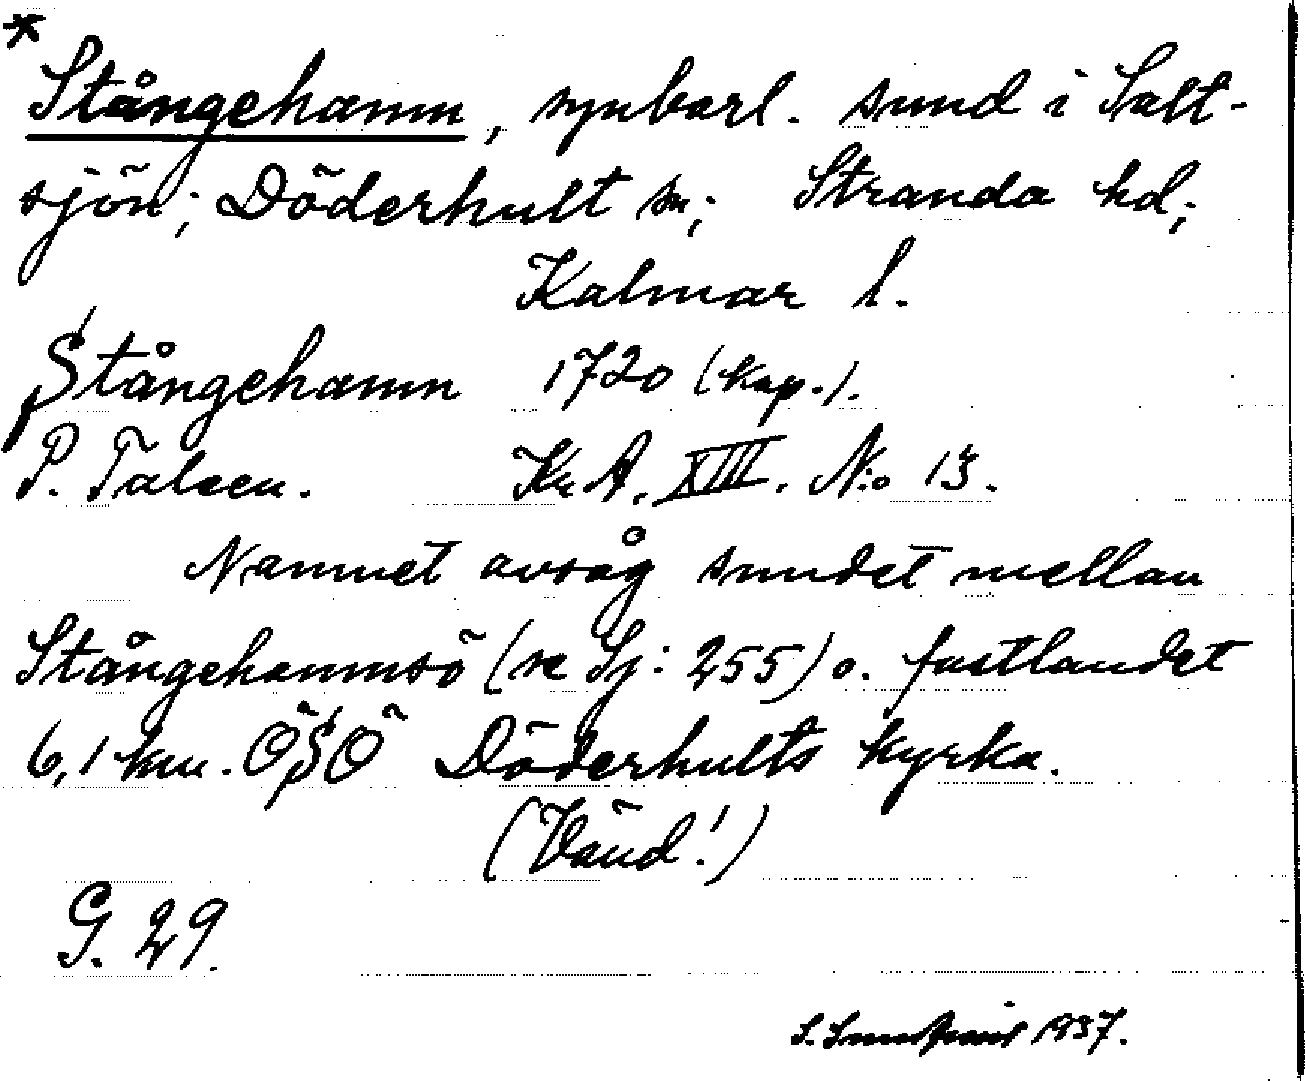 *
Stångehamn, synbarl. sund i Salt-
sjön; Döderhult sn; Stranda hd;
Kalmar l.
Stångehamn 1720 (kap.).
P. Talsen. Kr. A. XIII. N:o 13.
Namnet avsåg sundet mellan
Stångehamnsö (se Sj: 255) o. fastlandet
6,1 km. ÖSÖ Döderhults kyrka.
(Vänd!)
G. 29.
S. 1937.